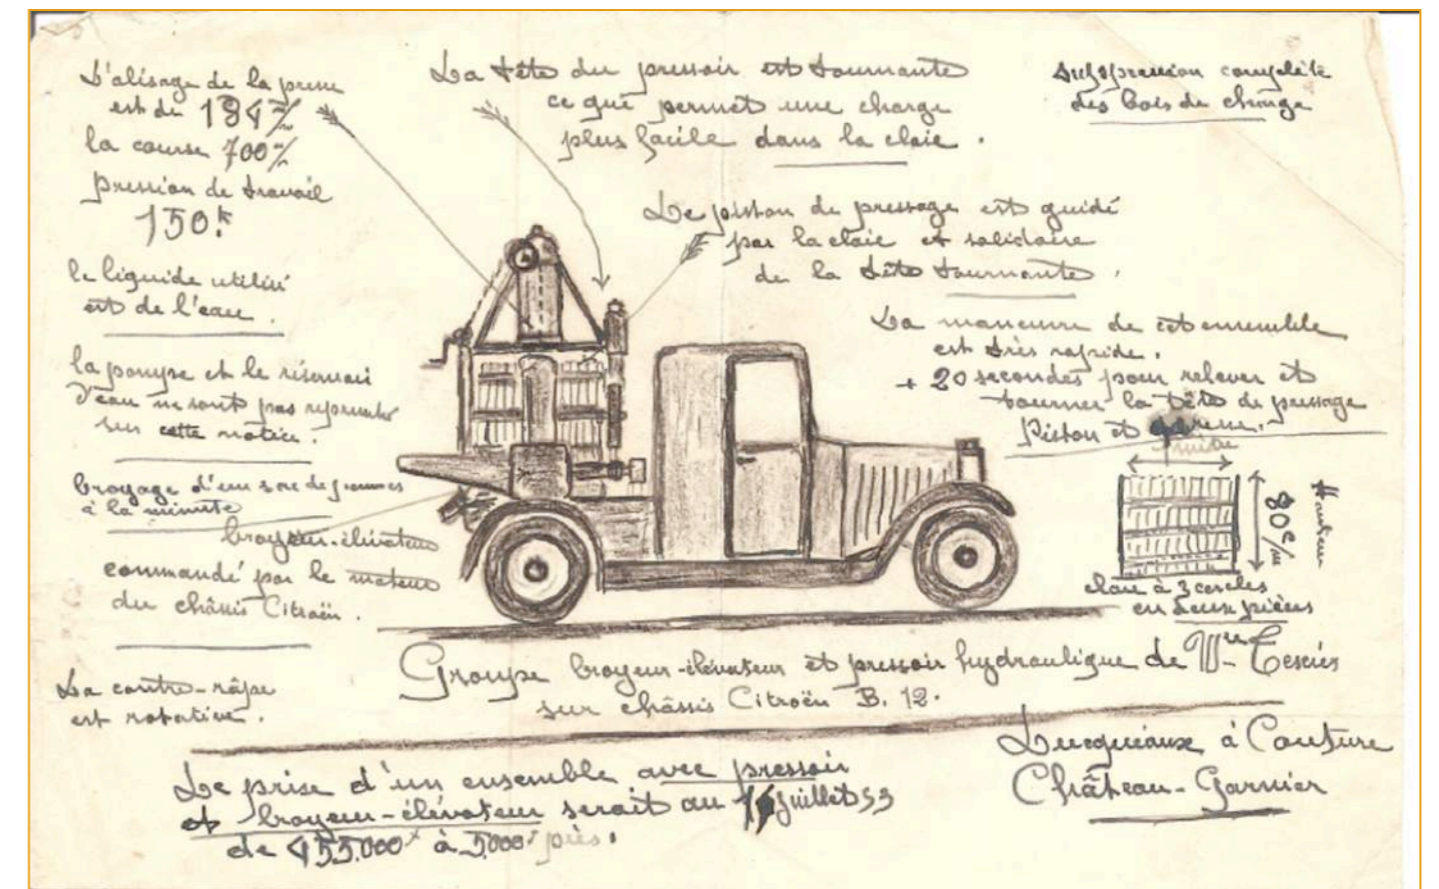 L'alisage de la presse
est de 184 m/m
la course 700 m/m
pression de travail
150 k
le liquide utilisé
est de l'eau.
la pompe et le réservoir
d'eau ne sont pas représentés
sur cette notice.
broyage d'un sac de pommes
à la minute
broyeur-élévateur
commandé par le moteur
du châssis Citroën.
La contre-râpe
est rotative.
La tête du pressoir est tournante
ce qui permet une charge
plus facile dans la claie.
suppression complète
des bois de charge
Le piston de pressage est guidé
par la claie et solidaire
de la tête tournante.
La manœuvre de cet ensemble
est très rapide.
+ 20 secondes pour relever et
tourner la tête de pressage
Piston et
Hauteur
80 c/m
claie à 3 cercles
en deux pièces
Groupe broyeur-élévateur et pressoir hydraulique de
sur châssis Citroën B. 12.
Luequiaux à Couture
Château-Garnier
Le prise d'un ensemble avec pressoir
et broyeur-élévateur serait au juillet 53
de 455.000 à 5000 près.